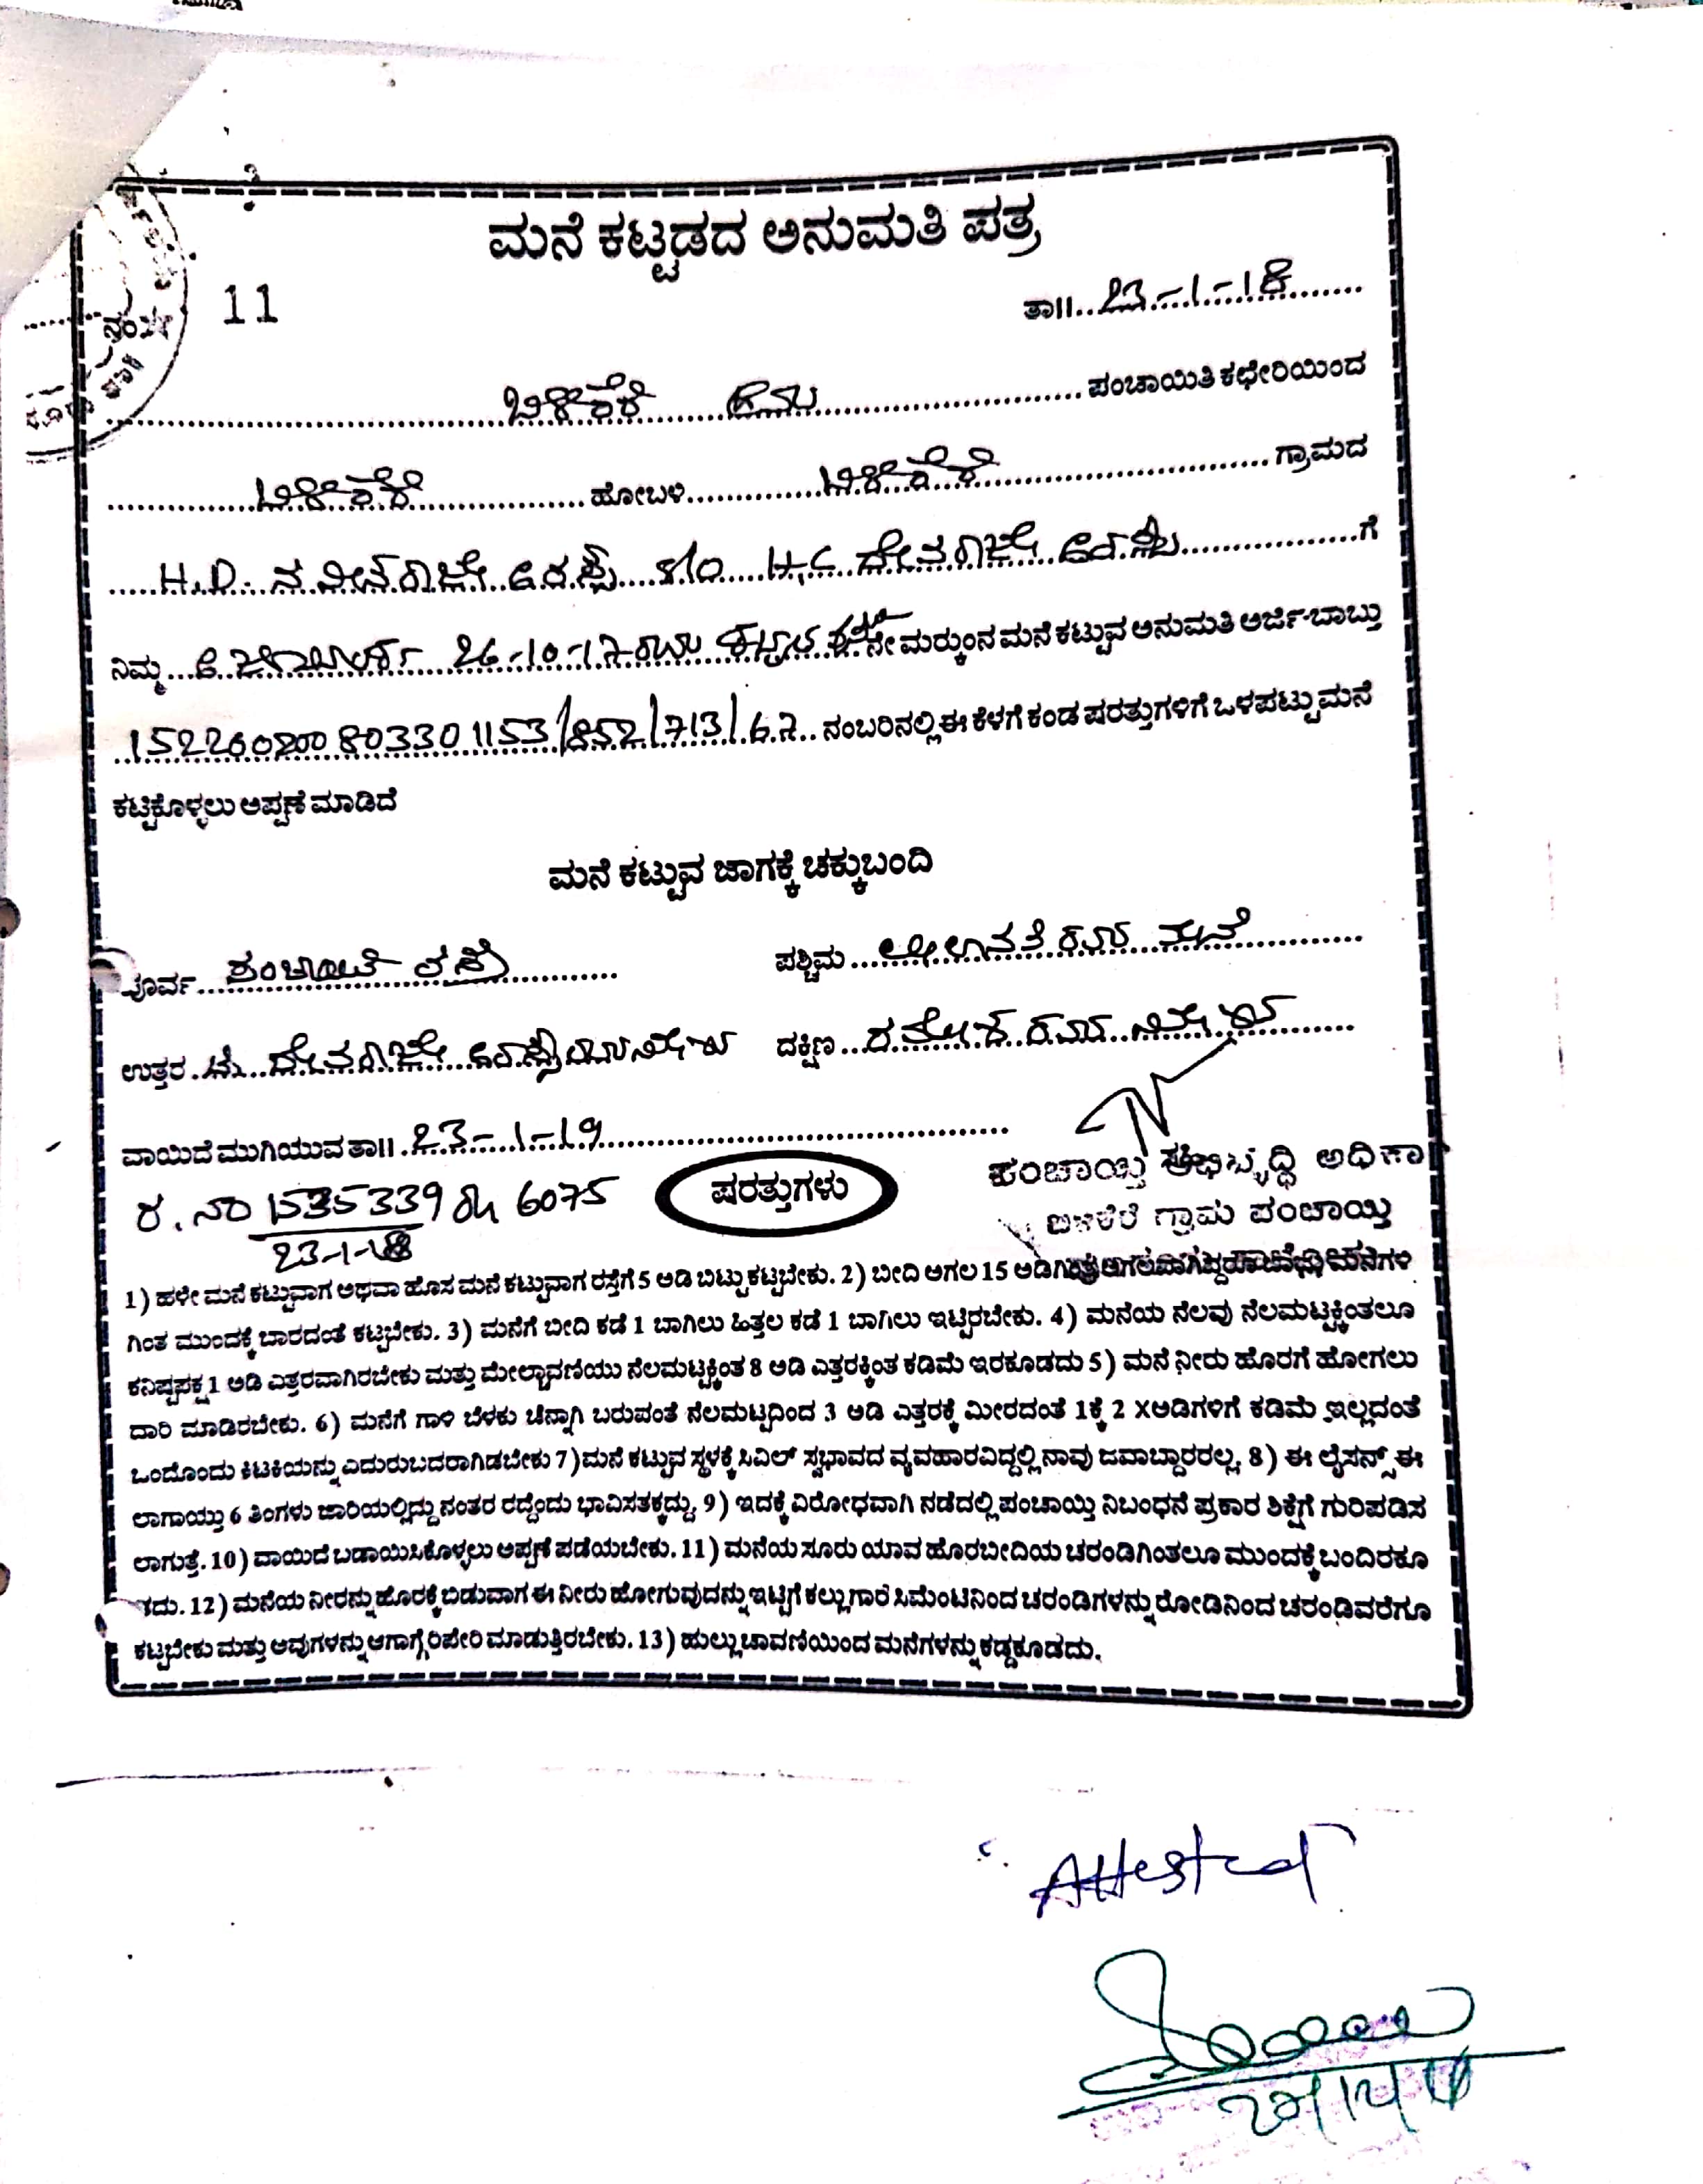 ಮನೆ ಕಟ್ಟಡದ ಅನುಮತಿ ಪತ್ರ
ನಂ 11
ತಾ॥ 23-1-18
ಬಿಳಿಕೆರೆ ಗ್ರಾಮ ಪಂಚಾಯಿತಿ ಕಛೇರಿಯಿಂದ
ಬಿಳಿಕೆರೆ ಹೋಬಳಿ ಬಿಳಿಕೆರೆ ಗ್ರಾಮದ
H.D. ನವೀನ್‌ರಾಜೇ ಅರಸ್ S/O H.C ದೇವರಾಜೇ ಅರಸು ಗೆ
ನಿಮ್ಮ 26-10-17 ನೇ ಮರ್‍ಕುಂನ ಮನೆ ಕಟ್ಟುವ ಅನುಮತಿ ಅರ್ಜಿ ಬಾಬ್ತು
152260200803301153/852/713/67 ನಂಬರಿನಲ್ಲಿ ಈ ಕೆಳಗೆ ಕಂಡ ಷರತ್ತುಗಳಿಗೆ ಒಳಪಟ್ಟು ಮನೆ
ಕಟ್ಟಿಕೊಳ್ಳಲು ಅಪ್ಪಣೆ ಮಾಡಿದೆ
ಮನೆ ಕಟ್ಟುವ ಜಾಗಕ್ಕೆ ಚಕ್ಕುಬಂದಿ
ಪೂರ್ವ ಪಂಚಾಯಿತಿ ರಸ್ತೆ ಪಶ್ಚಿಮ ಲೀಲಾವತಿ ರವರ ಮನೆ
ಉತ್ತರ ದೇವರಾಜೇ ಅರಸ್ ದಕ್ಷಿಣ ರಮೇಶ ರವರ ನಿವೇಶನ
ವಾಯಿದೆ ಮುಗಿಯುವ ತಾ॥ 23-1-19
ರ. ನಂ 1535339 ರೂ 6075
23-1-18
ಷರತ್ತುಗಳು
ಪಂಚಾಯ್ತಿ ಅಭಿವೃದ್ಧಿ ಅಧಿಕಾ
ಬಿಳಿಕೆರೆ ಗ್ರಾಮ ಪಂಚಾಯ್ತಿ
1) ಹಳೇ ಮನೆ ಕಟ್ಟುವಾಗ ಅಥವಾ ಹೊಸ ಮನೆ ಕಟ್ಟುವಾಗ ರಸ್ತೆಗೆ 5 ಅಡಿ ಬಿಟ್ಟು ಕಟ್ಟಬೇಕು. 2) ಬೀದಿ ಅಗಲ 15 ಅಡಿಗಿಂತ ಮನೆಗಳಿ
ಗಿಂತ ಮುಂದಕ್ಕೆ ಬಾರದಂತೆ ಕಟ್ಟಬೇಕು. 3) ಮನೆಗೆ ಬೀದಿ ಕಡೆ 1 ಬಾಗಿಲು ಹಿತ್ತಲ ಕಡೆ 1 ಬಾಗಿಲು ಇಟ್ಟಿರಬೇಕು. 4) ಮನೆಯ ನೆಲವು ನೆಲಮಟ್ಟಕ್ಕಿಂತಲೂ
ಕನಿಷ್ಟಪಕ್ಷ 1 ಅಡಿ ಎತ್ತರವಾಗಿರಬೇಕು ಮತ್ತು ಮೇಲ್ಛಾವಣಿಯು ನೆಲಮಟ್ಟಕ್ಕಿಂತ 8 ಅಡಿ ಎತ್ತರಕ್ಕಿಂತ ಕಡಿಮೆ ಇರಕೂಡದು 5) ಮನೆ ನೀರು ಹೊರಗೆ ಹೋಗಲು
ದಾರಿ ಮಾಡಿರಬೇಕು. 6) ಮನೆಗೆ ಗಾಳಿ ಬೆಳಕು ಚೆನ್ನಾಗಿ ಬರುವಂತೆ ನೆಲಮಟ್ಟದಿಂದ 3 ಅಡಿ ಎತ್ತರಕ್ಕೆ ಮೀರದಂತೆ 1ಕ್ಕೆ 2 Xಅಡಿಗಳಿಗೆ ಕಡಿಮೆ ಇಲ್ಲದಂತೆ
ಒಂದೊಂದು ಕಿಟಕಿಯನ್ನು ಎದುರುಬದರಾಗಿಡಬೇಕು 7)ಮನೆ ಕಟ್ಟುವ ಸ್ಥಳಕ್ಕೆ ಸಿವಿಲ್ ಸ್ವಭಾವದ ವ್ಯವಹಾರವಿದ್ದಲ್ಲಿ ನಾವು ಜವಾಬ್ದಾರರಲ್ಲ. 8) ಈ ಲೈಸನ್ಸ್ ಈ
ಲಾಗಾಯ್ತು 6 ತಿಂಗಳು ಜಾರಿಯಲ್ಲಿದ್ದು ನಂತರ ರದ್ದೆಂದು ಭಾವಿಸತಕ್ಕದ್ದು. 9) ಇದಕ್ಕೆ ವಿರೋಧವಾಗಿ ನಡೆದಲ್ಲಿ ಪಂಚಾಯ್ತಿ ನಿಬಂಧನೆ ಪ್ರಕಾರ ಶಿಕ್ಷೆಗೆ ಗುರಿಪಡಿಸ
ಲಾಗುತ್ತೆ. 10) ವಾಯಿದೆ ಬಡಾಯಿಸಿಕೊಳ್ಳಲು ಅಪ್ಪಣೆ ಪಡೆಯಬೇಕು. 11) ಮನೆಯ ಸೂರು ಯಾವ ಹೊರಬೀದಿಯ ಚರಂಡಿಗಿಂತಲೂ ಮುಂದಕ್ಕೆ ಬಂದಿರಕೂ
ಡದು. 12) ಮನೆಯ ನೀರನ್ನು ಹೊರಕ್ಕೆ ಬಿಡುವಾಗ ಈ ನೀರು ಹೋಗುವುದನ್ನು ಇಟ್ಟಿಗೆ ಕಲ್ಲು ಗಾರೆ ಸಿಮೆಂಟಿನಿಂದ ಚರಂಡಿಗಳನ್ನು ರೋಡಿನಿಂದ ಚರಂಡಿವರೆಗೂ
ಕಟ್ಟಬೇಕು ಮತ್ತು ಅವುಗಳನ್ನು ಆಗಾಗ್ಗೆ ರಿಪೇರಿ ಮಾಡುತ್ತಿರಬೇಕು. 13) ಹುಲ್ಲು ಚಾವಣಿಯಿಂದ ಮನೆಗಳನ್ನು ಕಡ್ಡಕೂಡದು.
Attested